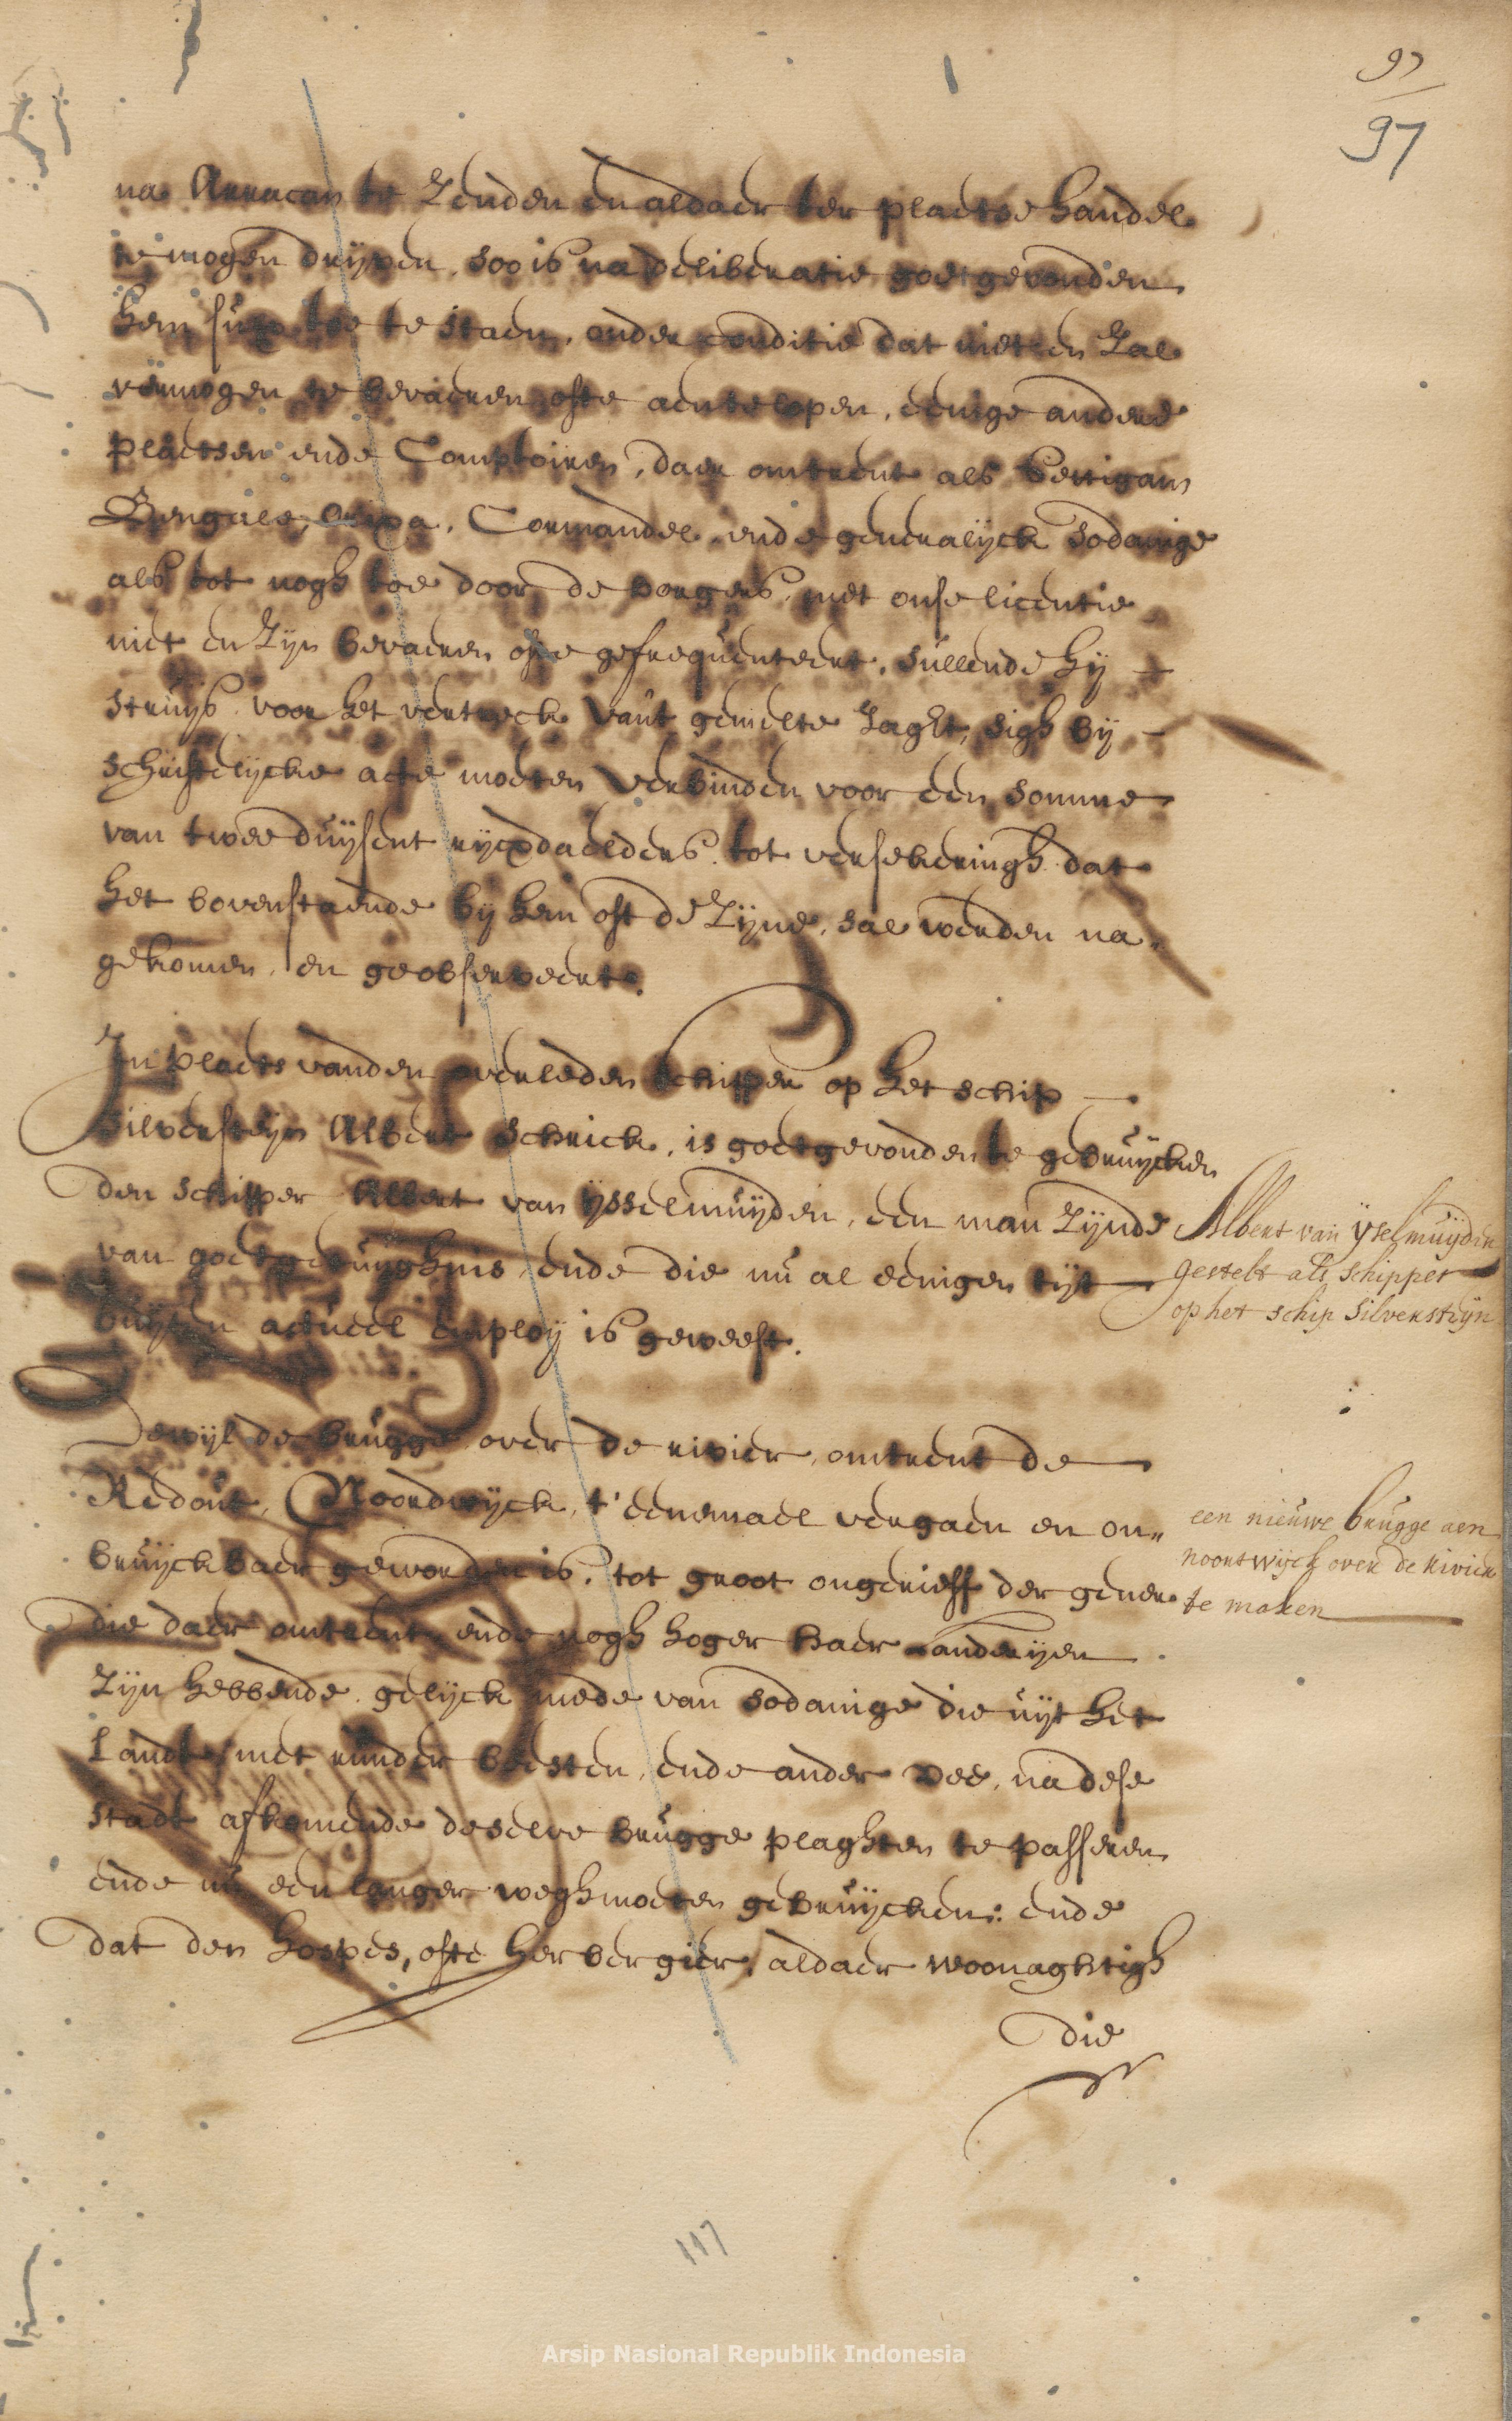 97
97
na Arracan te Zenden en aldaer ter plaetse handel
te mogen drijven, soo is na deliberatie goet gevonden
hem sulx toe te staen, onder conditie dat niet en Zal
vermogen te bevaeren ofte aentelopen, eenige andere
plaetsen ende Comptoiren, daer omtrent als
Bengale, Cormandel, ende generalijck sodanige
als tot nogh toe door de borgers, met onse licentie
niet en Zijn bevaeren ofte gefrequenteert, sullende hij
Struijs voor het vertreck van't gemelte Jaght, sigh bij
schriftelijcke acte moeten verbinden voor een somme
van twee duijsent rijcxdaelders, tot versekeringh dat
het bovenstaende bij hem oft de Zijne, sal werden na
gekomen, en geobserveert.
In plaets vanden overleden schipper op het schip
Silversteijn Albert Schrick, is goetgevonden te gebruijcken
den schipper Albert van ijsselmuijden, een man Zijnde
van goet getuijghnis, ende die nu al eenigen tijt
buijten actueel emploij is geweest.
Albert van ijselmuijden
gestelt als schipper
op het schip Silversteijn
Dewijl de brugge over de rivier, omtrent de
Redout, Noordwijck, t'eenemael vergaen en on„
bruijckbaer geworden is, tot groot ongerieff der gener
die daer omtrent, ende nogh hoger haer landerijen
Zijn hebbende, gelijck mede van sodanige die uijt het
Landt, met runder beesten, ende ander vee, na dese
stadt afkomende deselve brugge plaghten te passeren
ende nu een langer wegh moeten gebruijcken: ende
dat den hospes, ofte herbergier, aldaer woonaghtigh
een nieuwe brugge aen
noortwijck over de rivier
te maken
die
117
Arsip Nasional Republik Indonesia